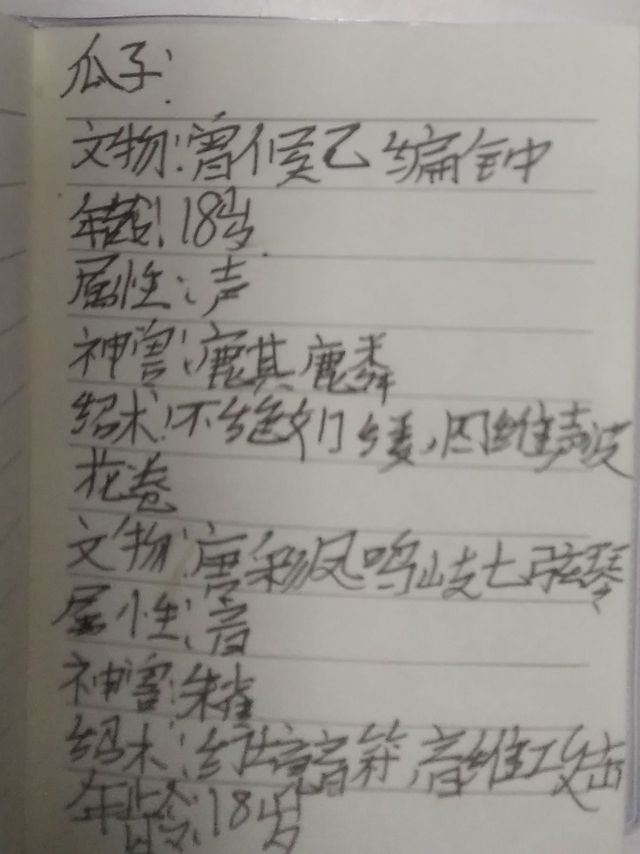 瓜子:
文物:曾候乙编钟
年龄:18岁
属性:声
神兽:麒麟
绍术:不绝如缕,四维声波
花卷
文物:唐彩凤鸣岐七弦琴
属性:音
神兽:朱雀
绍术:音符,音维攻击
年龄:18岁